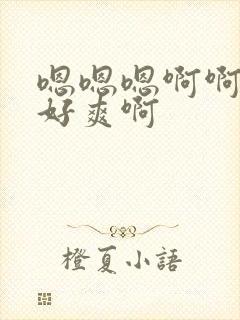 嗯嗯嗯啊啊
好爽啊
橙夏小語